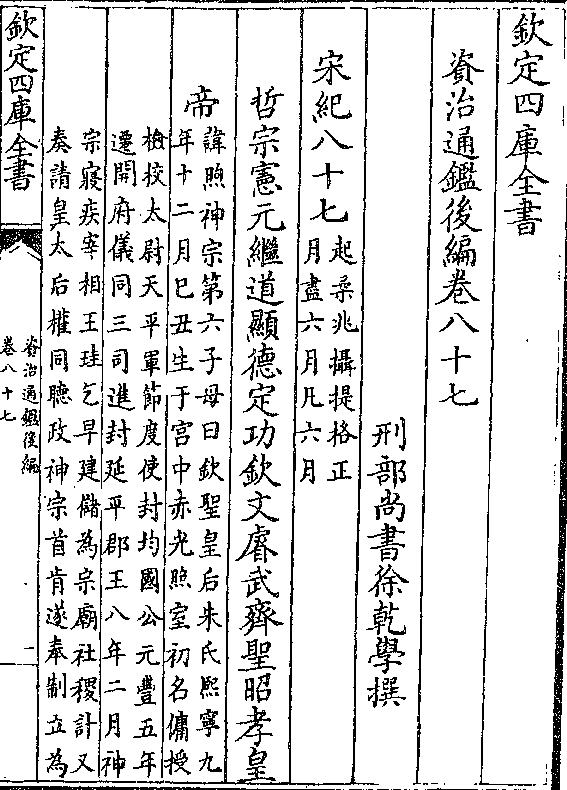 欽定四庫全書
資治通鑑後編卷八十七
刑部尚書徐乾學撰
宋紀八十七起柔兆攝提格正
月盡六月凡六月
哲宗憲元繼道顯德定功欽文睿武齊聖昭孝皇
帝諱煦神宗第六子母曰欽聖皇后朱氏熙寧九
年十二月巳丑生于宫中赤光照室初名傭授
檢校太尉天平軍節度使封均國公元豐五年
遷開府儀同三司進封延平郡王八年二月神
宗寢疾宰相王珪乞早建儲為宗廟社稷計又
奏請皇太后權同聽政神宗首肯遂奉制立為
欽定四庫全書
資治通鑑後編
卷八十七
一